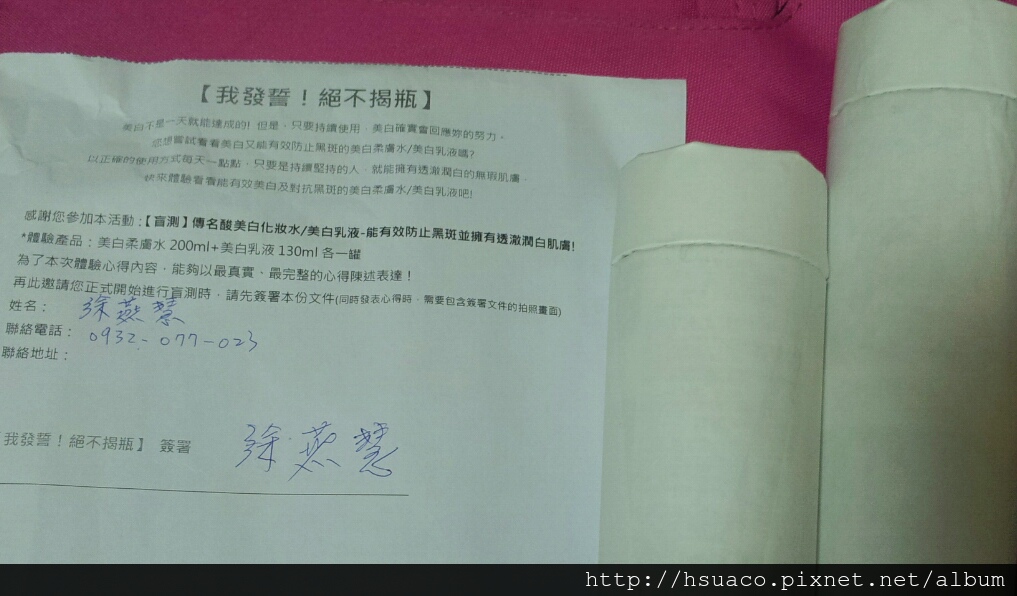 【我發誓！絕不揭瓶】
美白不是一天就能達成的! 但是、只要持續使用，美白確實會回應妳的努力。
您想嘗試看看美白又能有效防止黑斑的美白柔膚水/美白乳液嗎?
以正確的使用方式每天一點點，只要是持續堅持的人，就能擁有透澈潤白的無瑕肌膚。
快來體驗看看能有效美白及對抗黑斑的美白柔膚水/美白乳液吧!
感謝您參加本活動：【盲測】傳名酸美白化妝水/美白乳液-能有效防止黑斑並擁有透澈潤白肌膚!
*體驗產品：美白柔膚水 200ml+美白乳液 130ml 各一罐
為了本次體驗心得內容，能夠以最真實、最完整的心得陳述表達！
再此邀請您正式開始進行盲測時，請先簽署本份文件(同時發表心得時，需要包含簽署文件的拍照畫面)
姓名： 徐燕慧
聯絡電話： 0932-077-023
聯絡地址：
我發誓！絕不揭瓶】 簽署 徐燕慧
http://hsuaco.pixnet.net/album